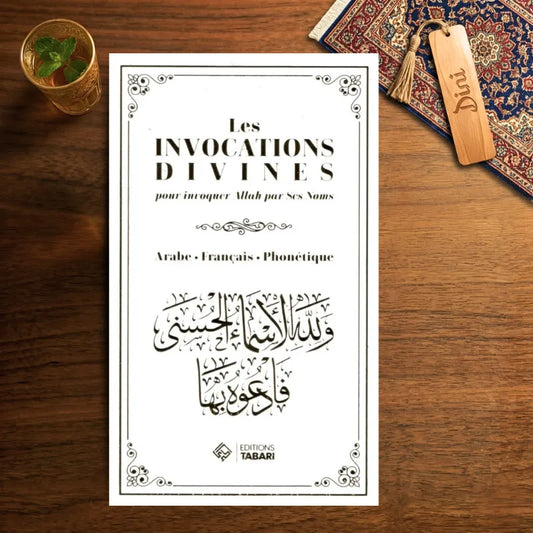 Les
INVOCATIONS
DIVINES
pour invoquer Allah par Ses Noms
Arabe • Français • Phonétique
وَلِلَّهِ الْأَسْمَاءُ الْحُسْنَى
فَادْعُوهُ بِهَا
EDITIONS
TABARI
Dini